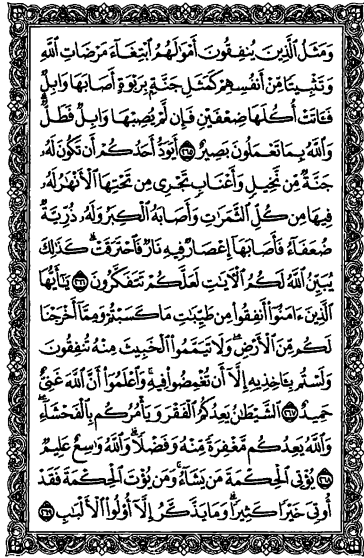 وَمَثَلُ الَّذِينَ يُنفِقُونَ أَمْوَٰلَهُمُ ابْتِغَآءَ مَرْضَاتِ اللَّهِ
وَتَثْبِيتًا مِّنْ أَنفُسِهِمْ كَمَثَلِ جَنَّةٍۭ بِرَبْوَةٍ أَصَابَهَا وَابِلٌ
فَـَٔاتَتْ أُكُلَهَا ضِعْفَيْنِ فَإِن لَّمْ يُصِبْهَا وَابِلٌ فَطَلٌّ
وَاللَّهُ بِمَا تَعْمَلُونَ بَصِيرٌ ٢٦٥ أَيَوَدُّ أَحَدُكُمْ أَن تَكُونَ لَهُۥ
جَنَّةٌ مِّن نَّخِيلٍ وَأَعْنَابٍ تَجْرِى مِن تَحْتِهَا الْأَنْهَٰرُ لَهُۥ
فِيهَا مِن كُلِّ الثَّمَرَٰتِ وَأَصَابَهُ الْكِبَرُ وَلَهُۥ ذُرِّيَّةٌ
ضُعَفَآءُ فَأَصَابَهَآ إِعْصَارٌ فِيهِ نَارٌ فَاحْتَرَقَتْ ۗ كَذَٰلِكَ
يُبَيِّنُ اللَّهُ لَكُمُ الْـَٔايَٰتِ لَعَلَّكُمْ تَتَفَكَّرُونَ ٢٦٦ يَٰٓأَيُّهَا
الَّذِينَ ءَامَنُوٓا۟ أَنفِقُوا۟ مِن طَيِّبَٰتِ مَا كَسَبْتُمْ وَمِمَّآ أَخْرَجْنَا
لَكُم مِّنَ الْأَرْضِ ۖ وَلَا تَيَمَّمُوا۟ الْخَبِيثَ مِنْهُ تُنفِقُونَ
وَلَسْتُم بِـَٔاخِذِيهِ إِلَّآ أَن تُغْمِضُوا۟ فِيهِ ۚ وَاعْلَمُوٓا۟ أَنَّ اللَّهَ غَنِىٌّ
حَمِيدٌ ٢٦٧ الشَّيْطَٰنُ يَعِدُكُمُ الْفَقْرَ وَيَأْمُرُكُم بِالْفَحْشَآءِ ۖ
وَاللَّهُ يَعِدُكُم مَّغْفِرَةً مِّنْهُ وَفَضْلًا ۗ وَاللَّهُ وَٰسِعٌ عَلِيمٌ
٢٦٨ يُؤْتِى الْحِكْمَةَ مَن يَشَآءُ ۚ وَمَن يُؤْتَ الْحِكْمَةَ فَقَدْ
أُوتِىَ خَيْرًا كَثِيرًا ۗ وَمَا يَذَّكَّرُ إِلَّآ أُو۟لُوا۟ الْأَلْبَٰبِ ٢٦٩